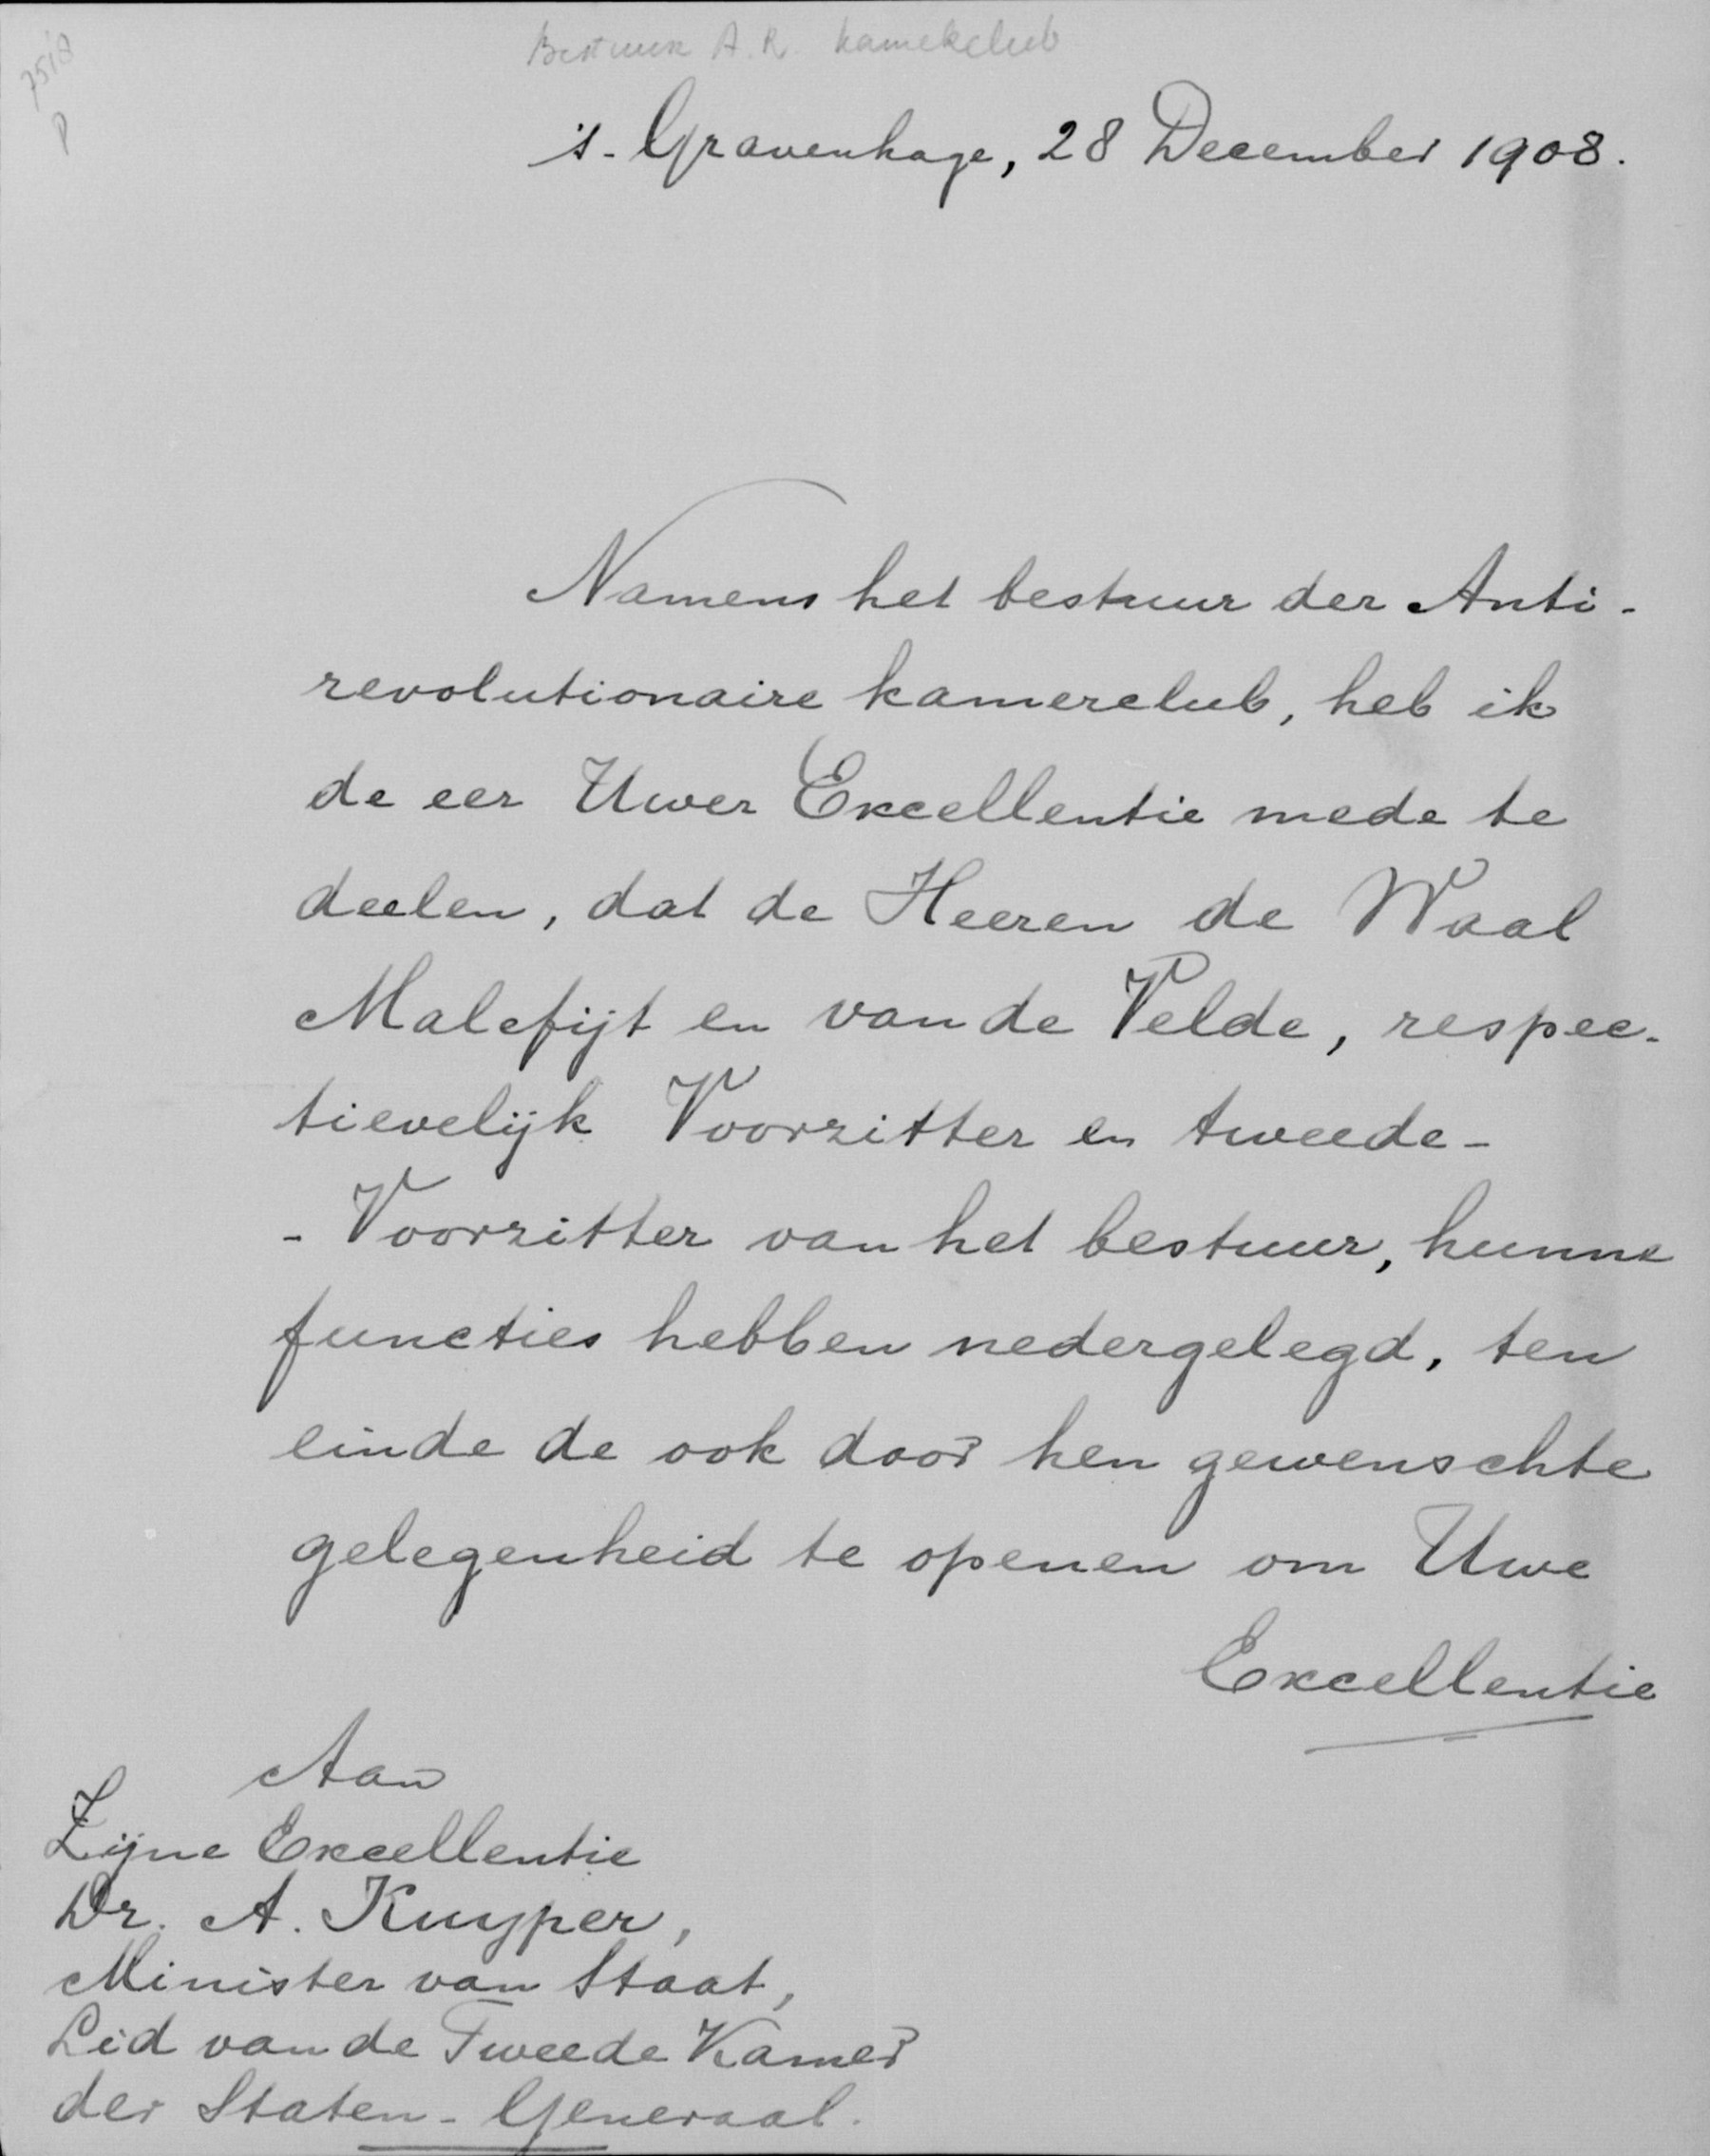 7518
P
Bestuur A.R. Kamerclub
's-Gravenhage, 28 December 1908.
Namens het bestuur der Anti-
revolutionaire kamerclub, heb ik
de eer Uwer Excellentie mede te
deelen, dat de Heeren de Waal
Malefijt en van de Velde, respec-
tievelijk Voorzitter en tweede-
-Voorzitter van het bestuur, hunne
functies hebben nedergelegd, ten
einde de ook door hen gewenschte
gelegenheid te openen om Uwe
Excellentie
Aan
Zijne Excellentie
Dr. A. Kuyper,
Minister van Staat,
Lid van de Tweede Kamer
der Staten-Generaal.